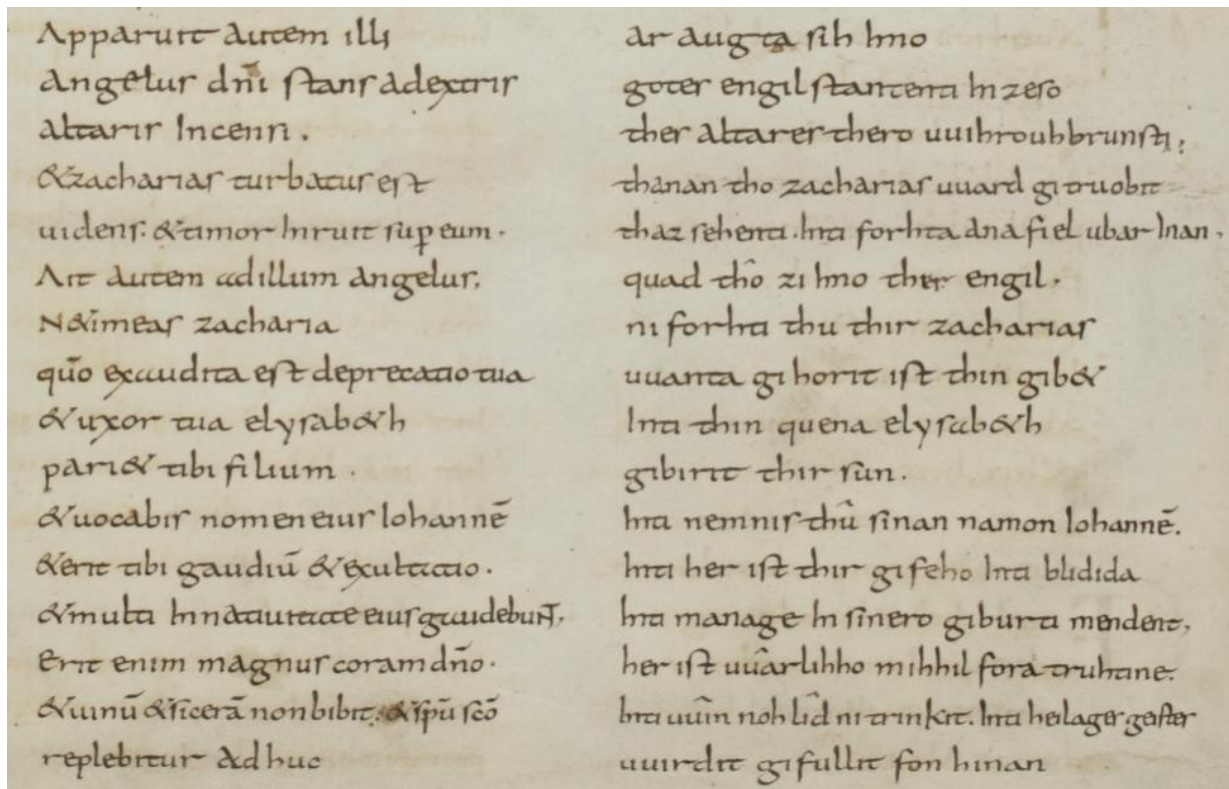 Apparuit autem illi
angelus dn̄i stans adextris
altaris Incensi.
&zacharias turbatus est
uidens. &timor Inruit sup̱ eum.
Ait autem adillum angelus.
N&imeas zacharia
qūo exaudita est deprecatio tua
&uxor tua elysab&h
pari& tibi filium.
&uocabis nomen eius Iohannē
&erit tibi gaudiū &exultatio.
&multi Innatiuitate eius gaudebunt.
Erit enim magnus coram dn̄o.
&uinū &sicerā non bibit. &spū scō
replebitur Adhuc
ar augta sih Imo
gotes engil stantenti Inzeso
thes altares thero uuihrouhbrunsti;
thanan tho zacharias uuard gitruobit
thaz sehenti. Inti forhta ana fiel ubar Inan.
quad thô zi Imo ther engil.
ni forhti thu thir zacharias
uuanta gihorit ist thin gib&
Inti thin quena elysab&h
gibirit thir sun.
Inti nemnis thû sînan namon Iohannē.
Inti her ist thir gifeho Inti blidida
Inti manage In sînero giburti mendent.
her ist uuârlihho mihhil fora truhtine.
Inti uuîn noh lîd ni trinkit. Inti heilages geistes
uuirdit gifullit fon hinan